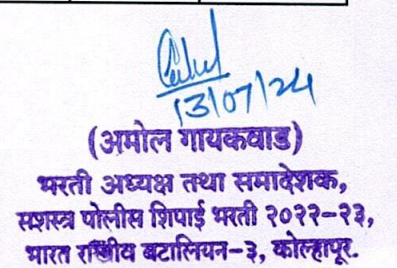 13/07/24
(अमोल गायकवाड)
भरती अध्यक्ष तथा समादेशक,
सशस्त्र पोलीस शिपाई भरती २०२२-२३,
भारत राखीव बटालियन-३, कोल्हापूर.